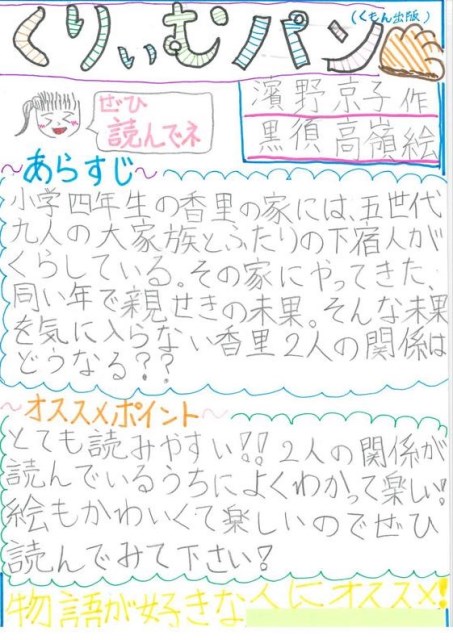 くりぃむパン
(くもん出版)
濱野京子作
黒須高嶺絵
ぜひ
読んでネ
～あらすじ～
小学四年生の香里の家には、五世代
九人の大家族とふたりの下宿人が
くらしている。その家にやってきた、
同い年で親せきの未果。そんな未果
を気に入らない香里2人の関係は
どうなる??
～オススメポイント～
とても読みやすい!!2人の関係が
読んでいるうちによくわかって楽しい!
絵もかわいくて楽しいのでぜひ
読んでみて下さい!
物語が好きな人にオススメ!